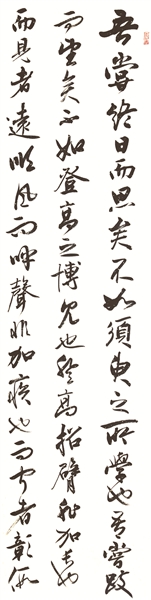 吾嘗終日而思矣不如須臾之所學也吾嘗跂
而望矣不如登高之博見也登高招臂非加長也
而見者遠順風而呼聲非加疾也而聞者彰假